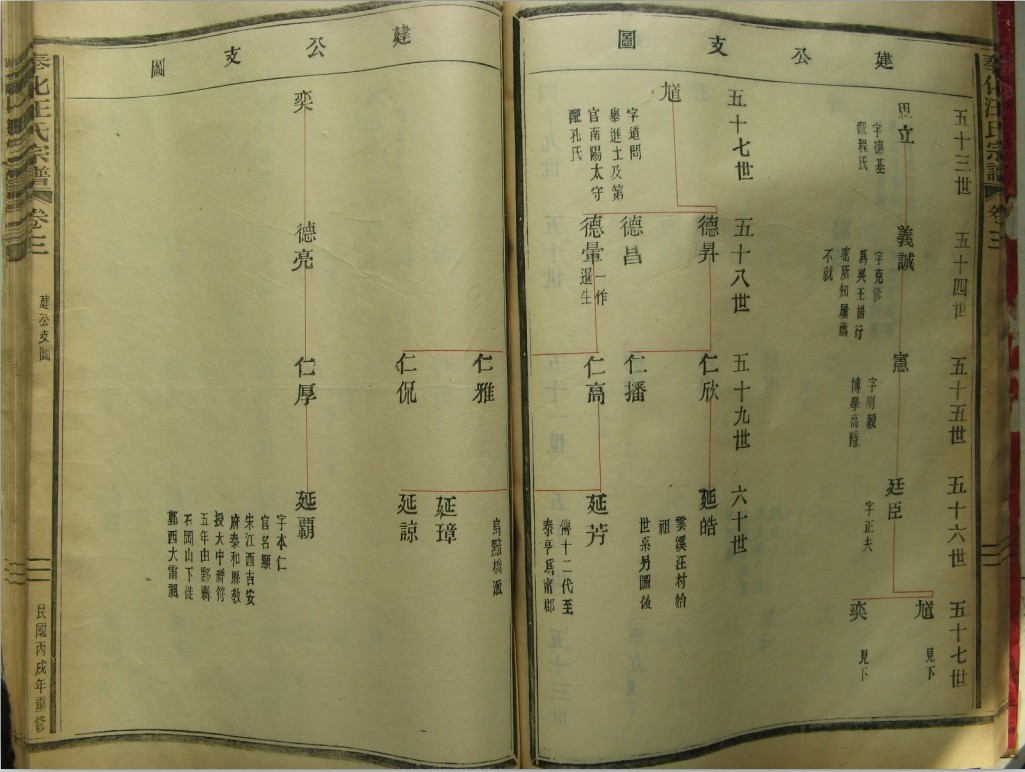 奉化汪氏宗譜 卷三
建公支圖
五十三世
思立
字德基
配程氏
五十四世
義誠
字克修
爲吳王楊行
密所知屢薦
不就
五十五世
憲
字剛毅
博學高隱
五十六世
廷臣
字正夫
五十七世
馗
見下
奕
見下
五十七世
馗
字道問
舉進士及第
官南陽太守
配孔氏
五十八世
德昇
德昌
德暈
一作
暹生
五十九世
仁欣
仁播
仁高
六十世
延皓
雲溪汪村始
祖
世系另圖後
延芳
傳十二代至
泰亨爲甯郡
建公支圖
烏黯橋派
仁雅
仁侃
延璋
延諒
奕
德亮
仁厚
延霸
字本仁
官名顯
朱江西吉安
府泰和縣教
授大中祥符
五年由黟縣
石岡山下徙
鄞西大雷
奉化汪氏宗譜 卷三
建公支圖
民國丙戌年重修